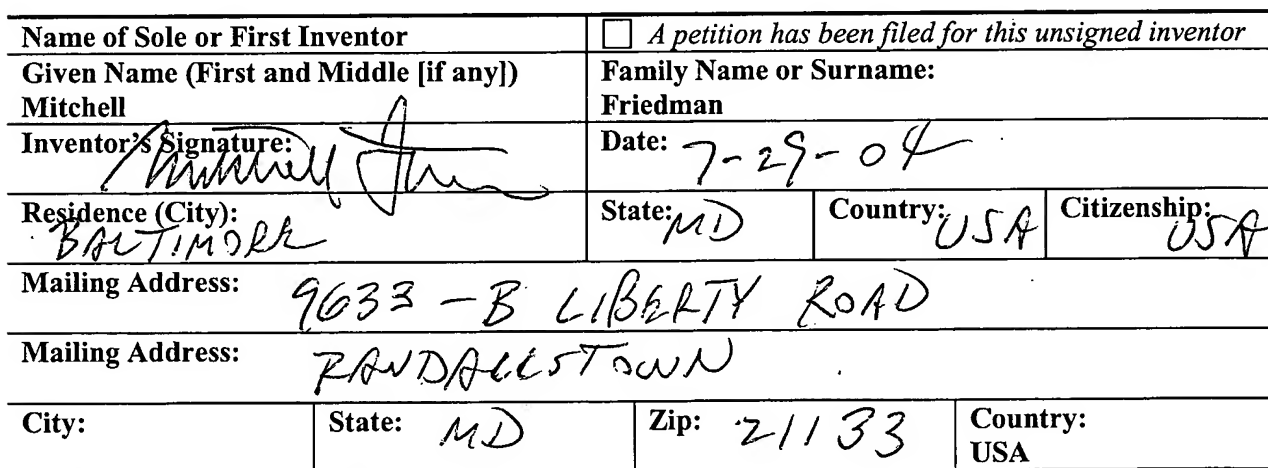 Name of Sole or First Inventor A petition has been filed for this unsigned inventor
Given Name (First and Middle [if any]) Family Name or Surname:
Mitchell Friedman
Inventor's Signature: Mitchell Date: 7-29-04
Residence (City): State: MD Country: USA Citizenship: USA
BALTIMORE
Mailing Address: 9633-B LIBERTY ROAD
Mailing Address: RANDALLSTOWN
City: State: MD Zip: 21133 Country:
USA